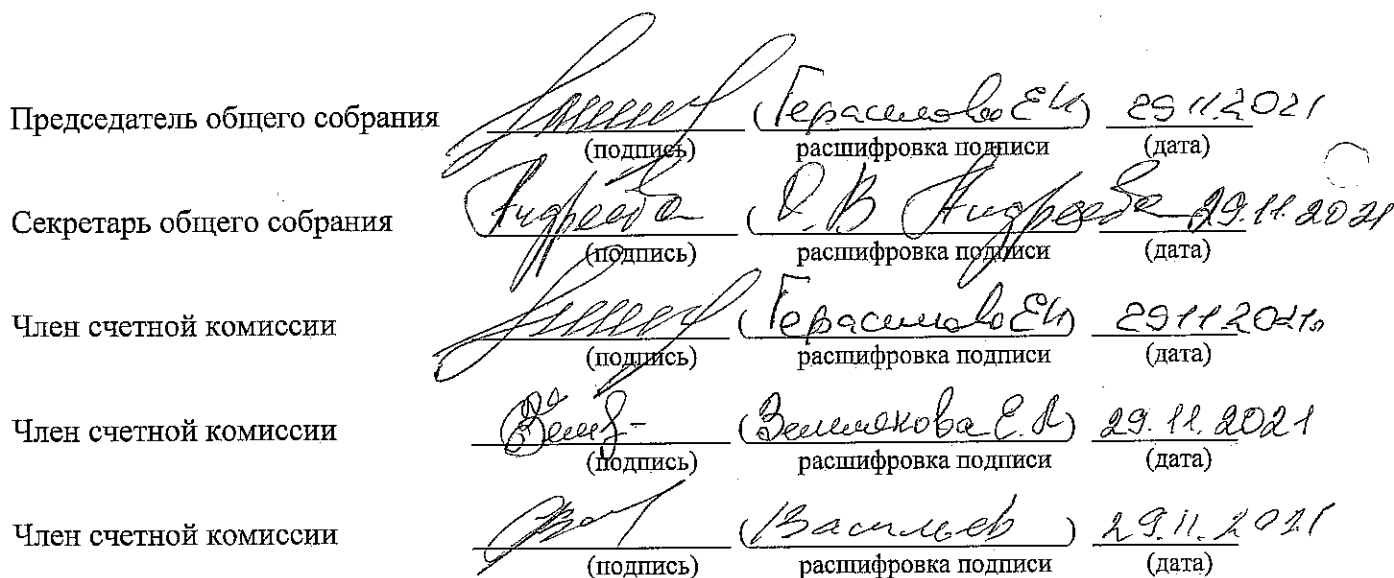 Председатель общего собрания (Герасимова Е И) 29 11.2021
(подпись) расшифровка подписи (дата)
Секретарь общего собрания Андреева О.В Андреева 29.11.2021
(подпись) расшифровка подписи (дата)
Член счетной комиссии (Герасимова ЕИ) 29 11 2021
(подпись) расшифровка подписи (дата)
Член счетной комиссии (Землякова Е.А) 29.11.2021
(подпись) расшифровка подписи (дата)
Член счетной комиссии (Васильев) 29.11.2021
(подпись) расшифровка подписи (дата)